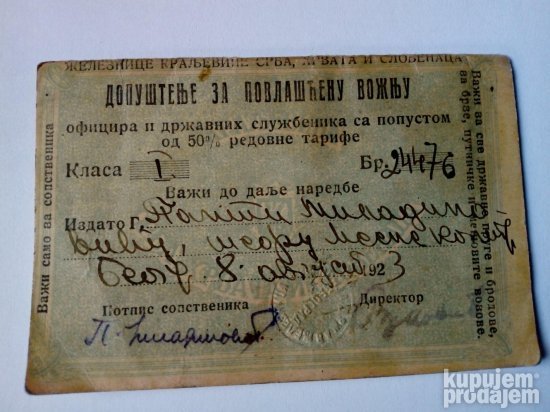 ЖЕЛЕЗНИЦЕ КРАЉЕВИНЕ СРБА, ХРВАТА И СЛОВЕНАЦА
ДОПУШТЕЊЕ ЗА ПОВЛАШЋЕНУ ВОЖЊУ
официра и државних службеника са попустом
од 50% редовне тарифе
Класа I. Бр. 24476
Важи до даље наредбе
Издато Г.
Беогр. 8. август 1923
Потпис сопственика Директор
П.
Важи само за сопственика
Важи за све државне пруге и бродове,
за брзе, путничке и мешовите возове.
kupujem
prodajem